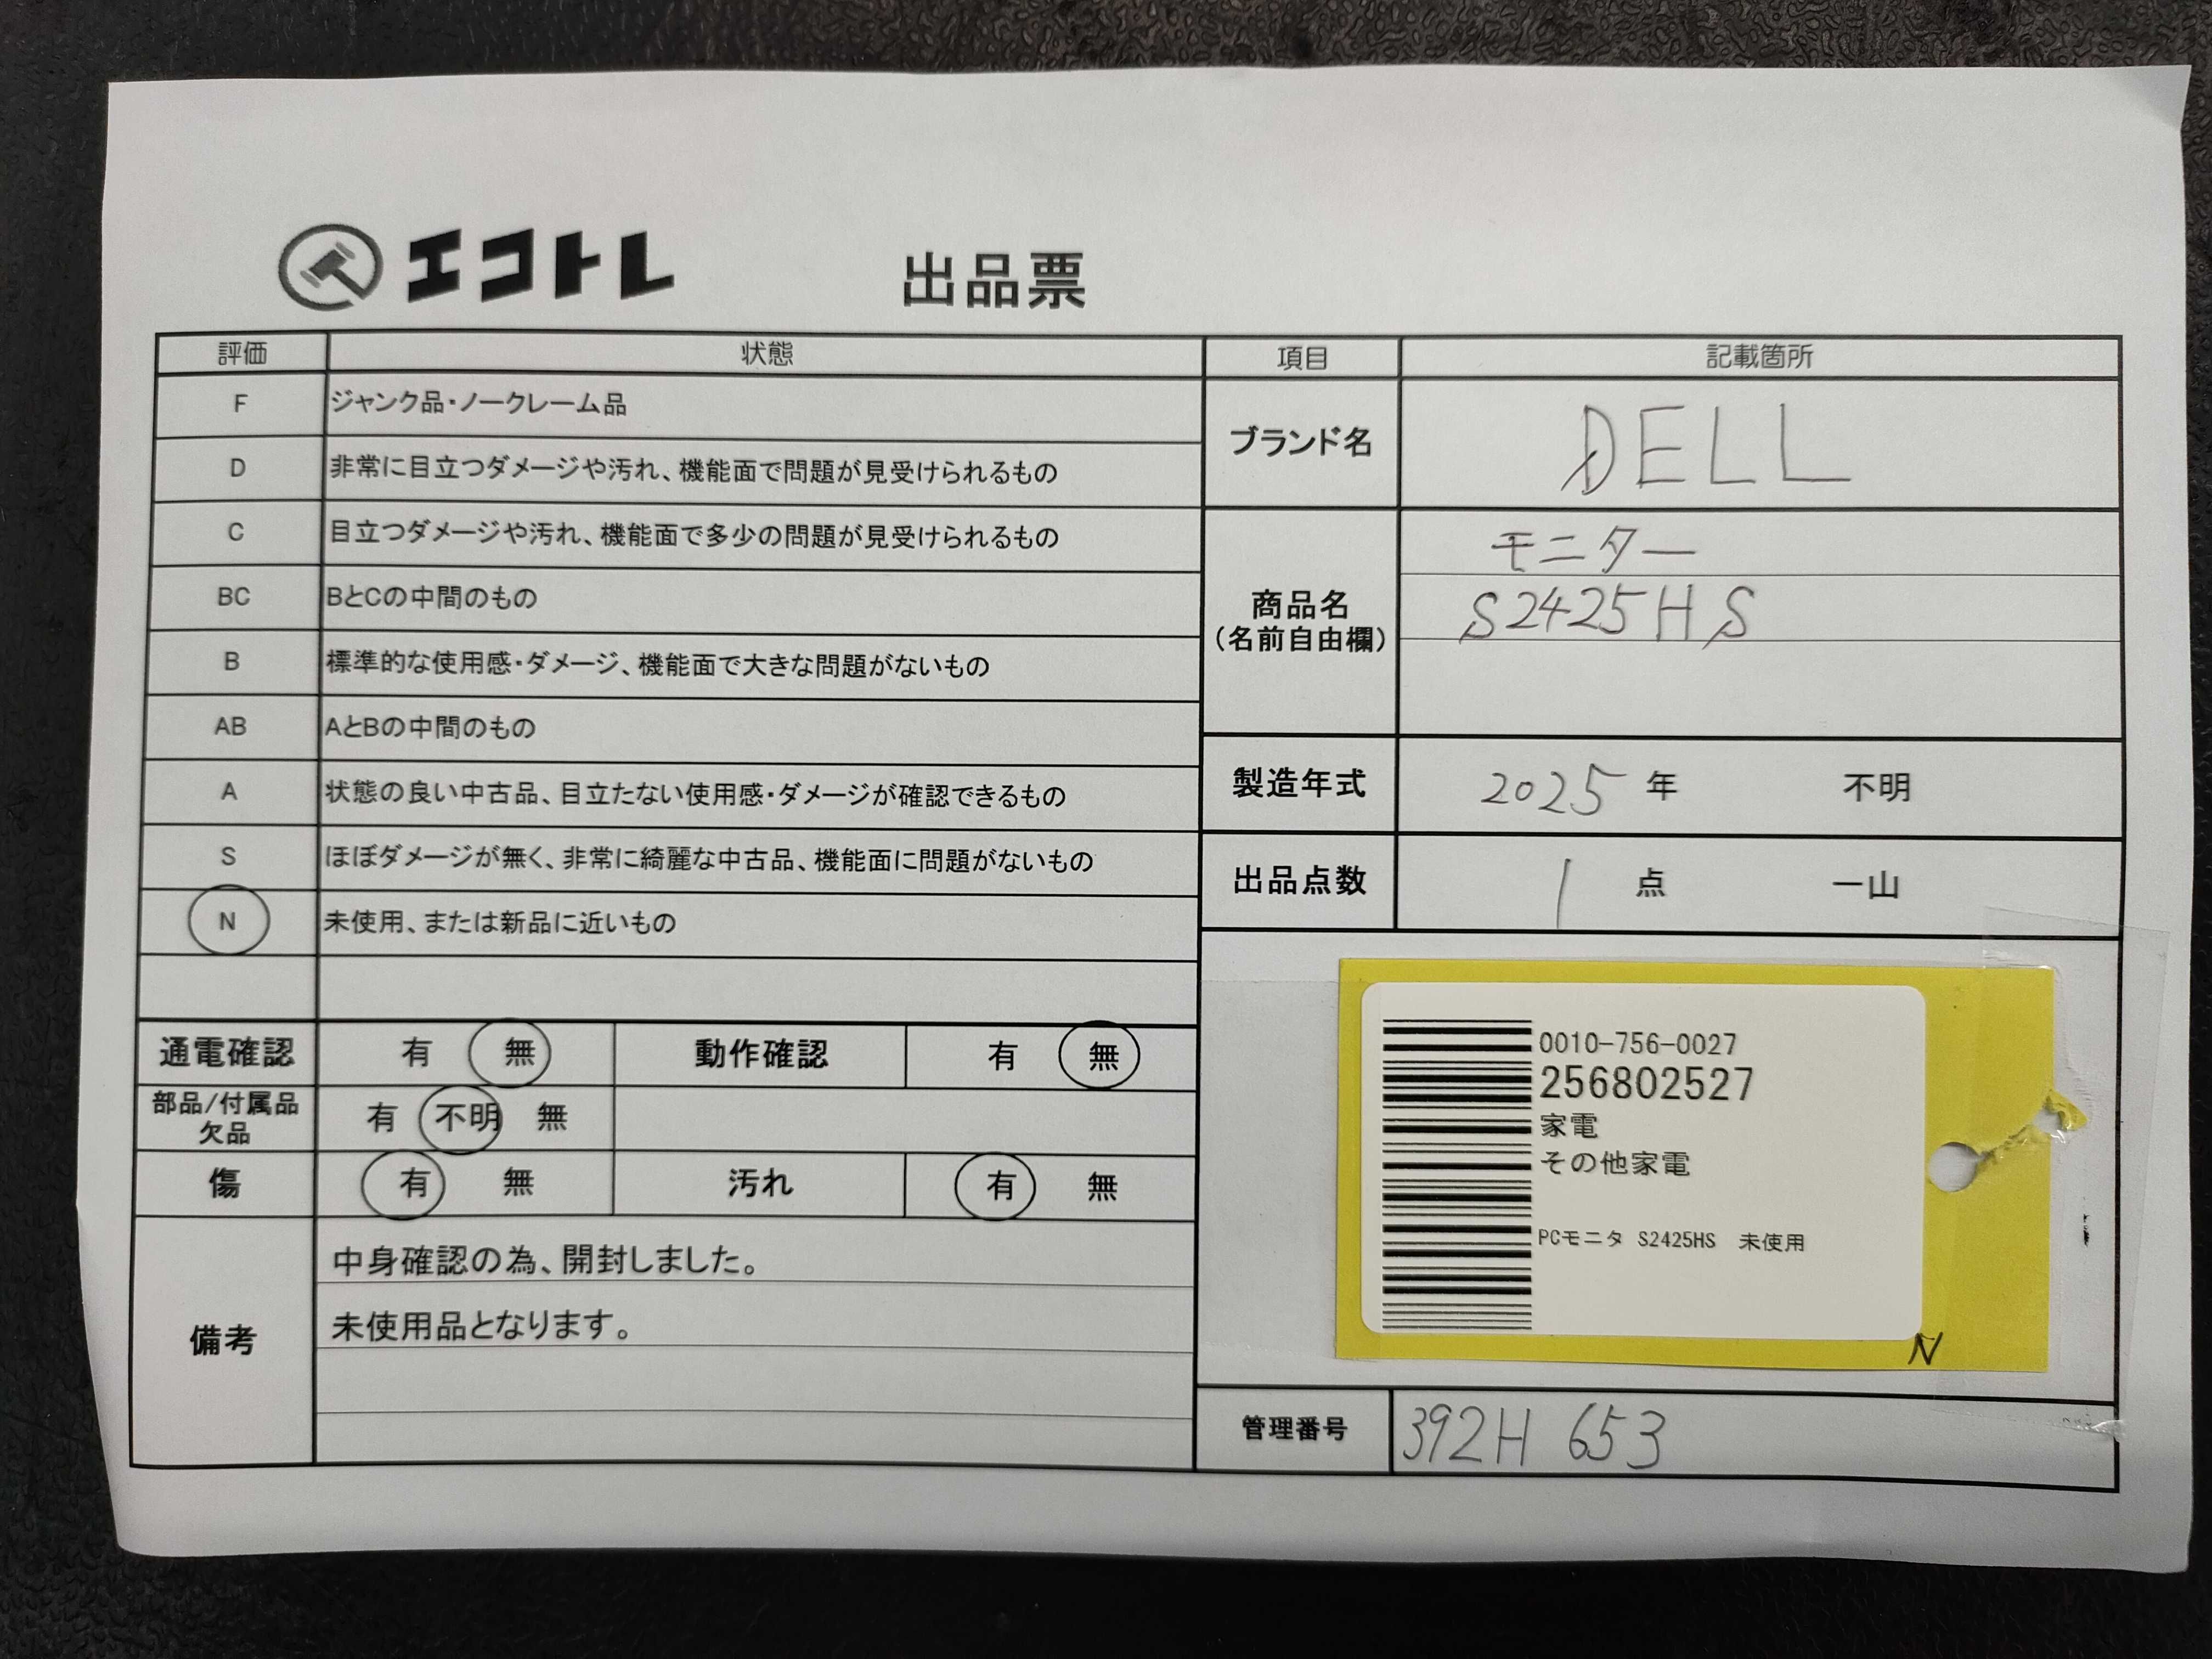 エコトレ 出品票
評価 状態
F ジャンク品・ノークレーム品
D 非常に目立つダメージや汚れ、機能面で問題が見受けられるもの
C 目立つダメージや汚れ、機能面で多少の問題が見受けられるもの
BC BとCの中間のもの
B 標準的な使用感・ダメージ、機能面で大きな問題がないもの
AB AとBの中間のもの
A 状態の良い中古品、目立たない使用感・ダメージが確認できるもの
S ほぼダメージが無く、非常に綺麗な中古品、機能面に問題がないもの
N 未使用、または新品に近いもの
通電確認 有 無 動作確認 有 無
部品/付属品
欠品 有 不明 無
傷 有 無 汚れ 有 無
備考
中身確認の為、開封しました。
未使用品となります。
項目 記載箇所
ブランド名 DELL
商品名
(名前自由欄)
モニター
S2425HS
製造年式 2025 年 不明
出品点数 1 点 一山
0010-756-0027
256802527
家電
その他家電
PCモニタ S2425HS 未使用
N
管理番号 392H 653